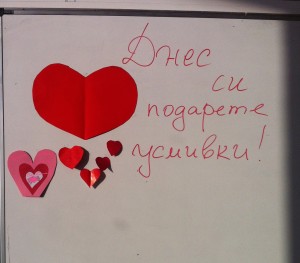 Днес
си
подарете
усмивки!